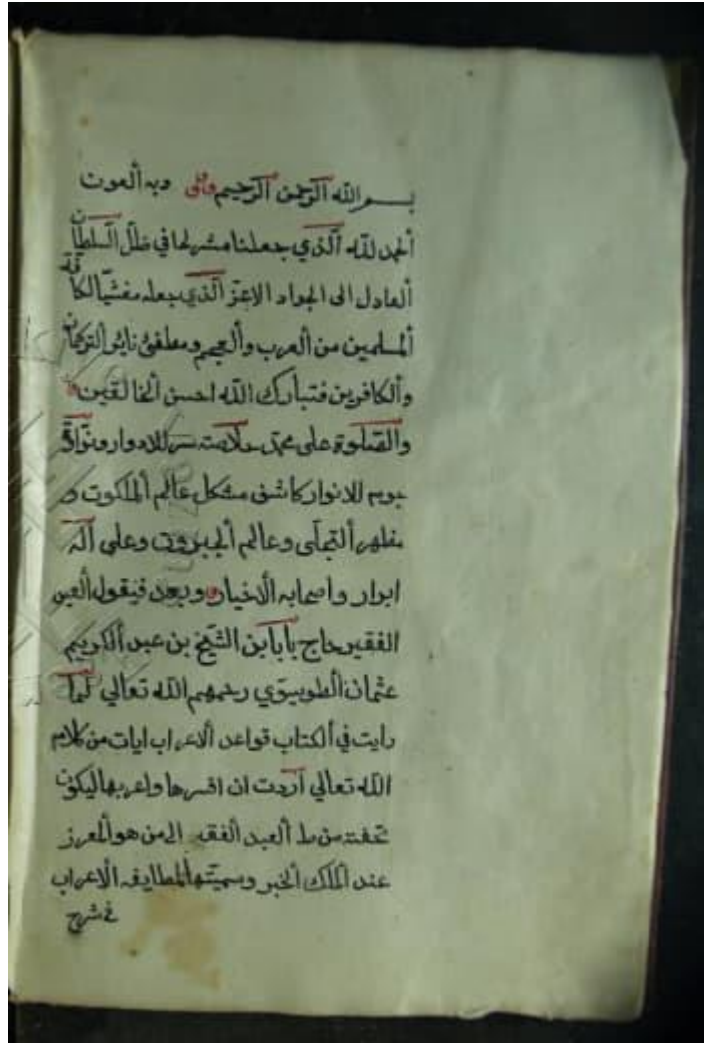 بسم الله الرحمن الرحيم وبه العون
الحمد لله الذي جعلنا مشرفا في ظل السلطان
العادل الى الجواد الاعز الذي جعله مغشيا لكافة
المسلمين من العرب والعجم ومطفئ نايئر التركمان
والكافرين فتبارك الله احسن الخالقين
والصلوة على محمد للادوار
للانوار كاشف مشكل عالم الملكوت و
مظهر التجلى وعالم الجبروت وعلى آله
ابرار واصحابه الاخيار وبعد فيقول العبد
الفقير حاج بابا بن الشيخ بن عبد الكريم
عثمان الطوسيوي رحمهم الله تعالى لما
رايت في الكتاب قواعد الاعراب ايات من كلام
الله تعالى اردت ان افسرها واعربها ليكون
تحفته من العبد الفقير الى من هو المعزز
عند الملك الخبر وسميتها الاعراب
في شرح